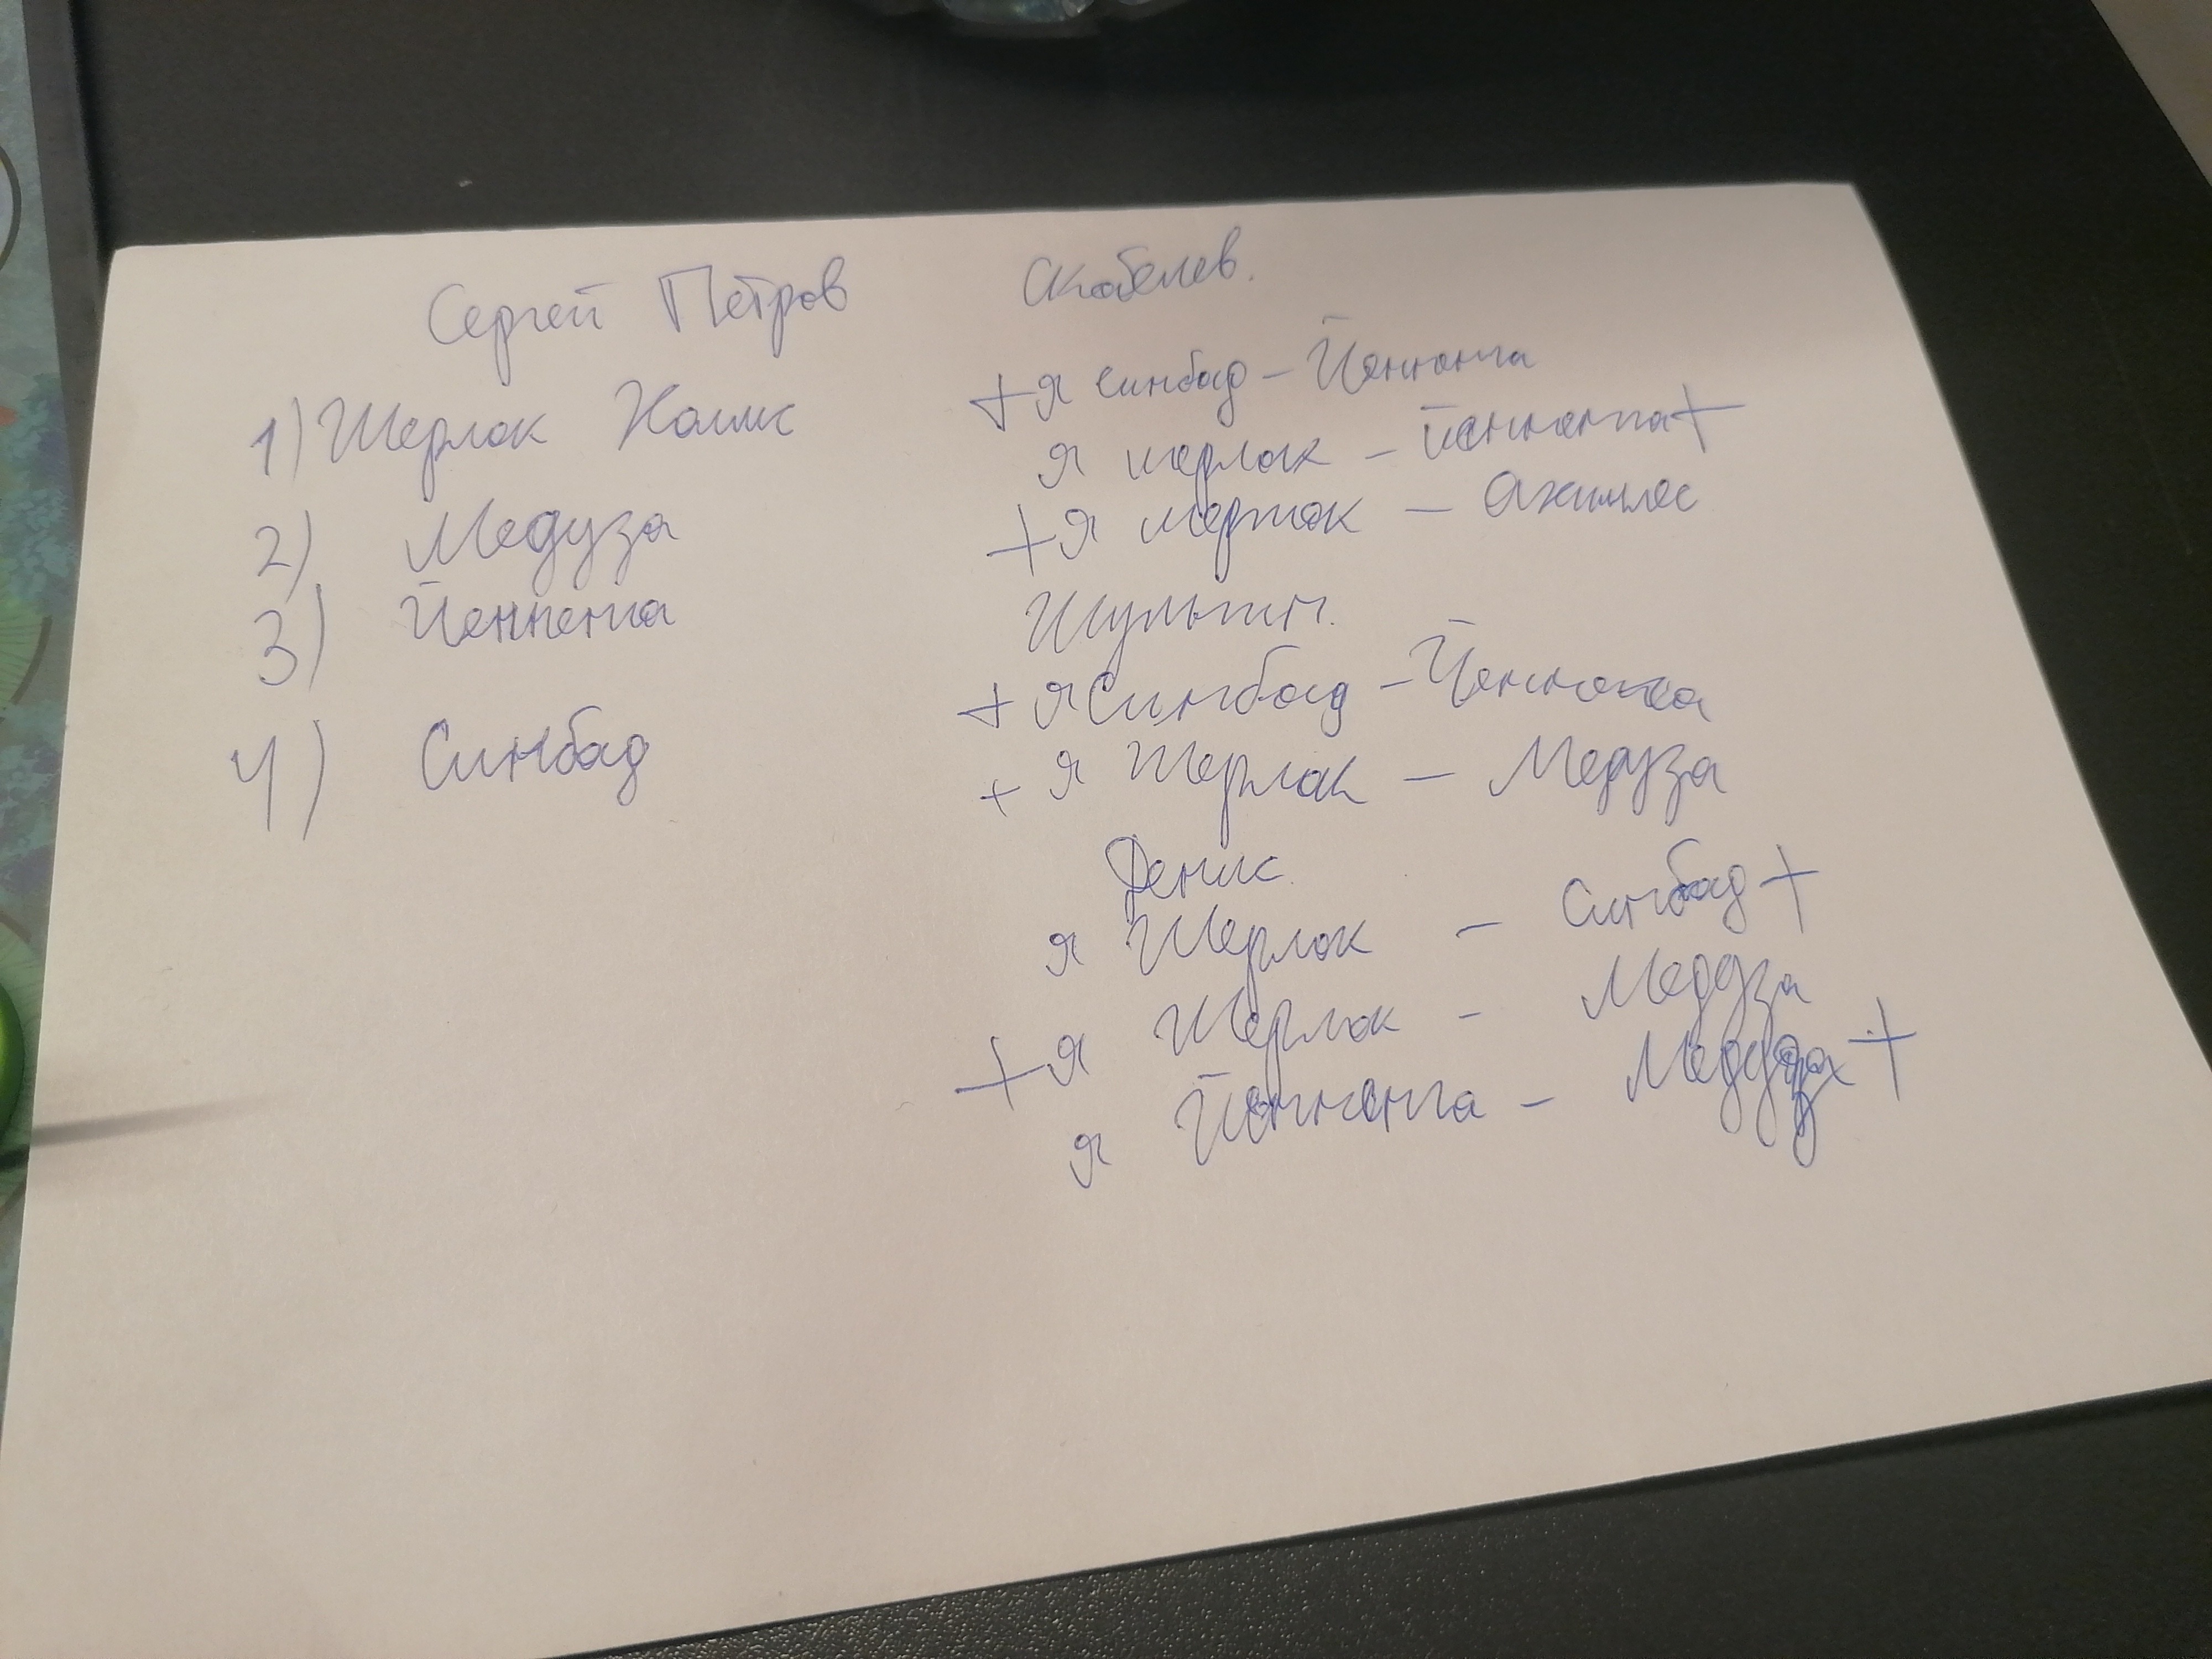 Сергей Петров
1) Шерлок Холмс
2) Медуза
3) Йенненга
4) Синбад
Скобелев.
+ я синбад - Йенненга
я шерлок - йенненга +
+ я шерлок - Ахиллес
Шульгин.
+ я Синбад - Йенненга
+ я Шерлок - Медуза
Денис
я Шерлок - Синбад +
+ я Шерлок - Медуза
я Йенненга - Медуза +